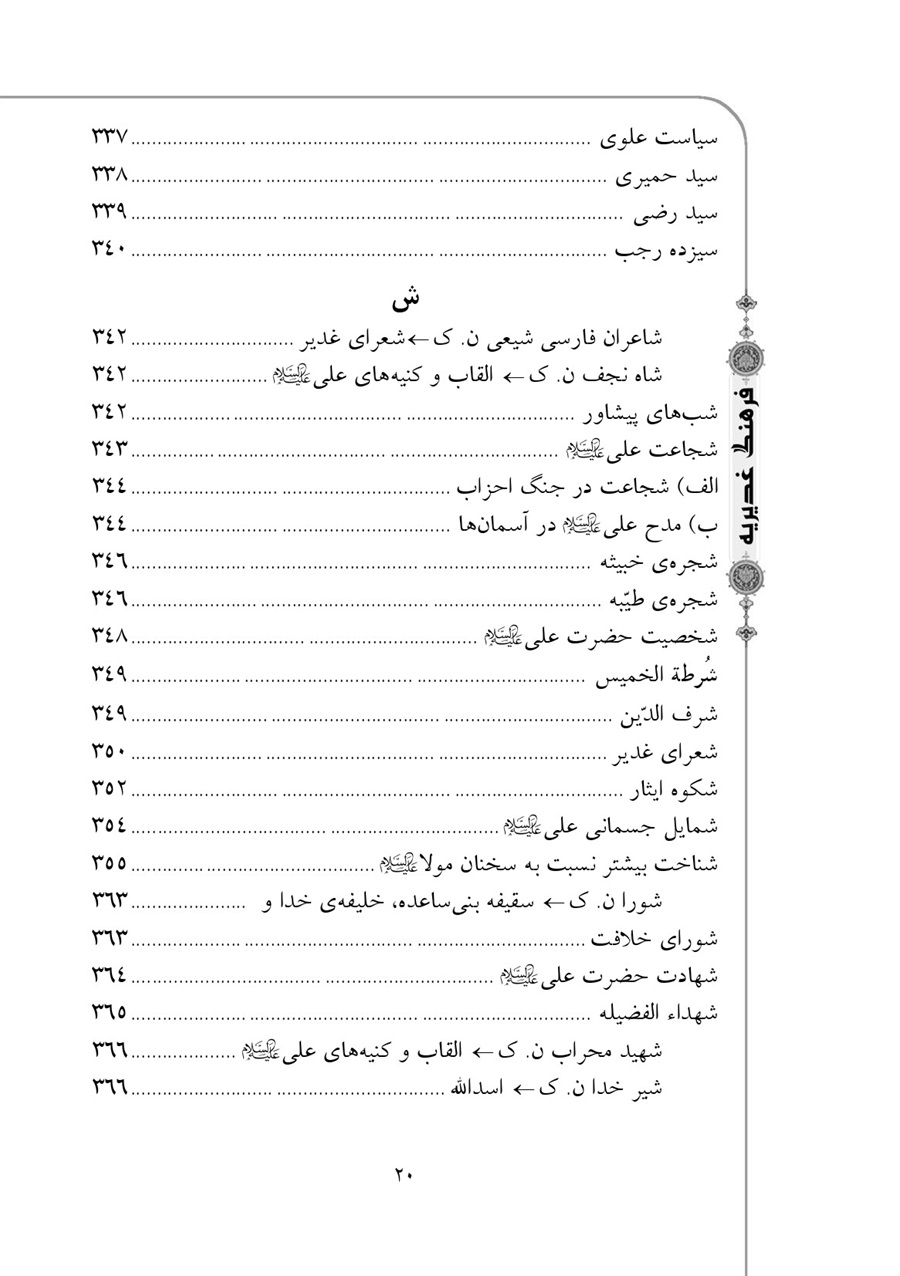 سیاست علوی ................................ ................................ ...................... ۳۳۷
سید حمیری ................................ ................................ ......................... ۳۳۸
سید رضی ................................ ................................ ............................ ۳۳۹
سیزده رجب ................................ ................................ ......................... ۳٤۰
ش
شاعران فارسی شیعی ن. ک ←شعرای غدیر ............................... ۳٤۲
شاه نجف ن. ک ← القاب و کنیه‌های علی علیه‌السلام .......................... ۳٤۲
شب‌های پیشاور ................................ ................................ ..................... ۳٤۲
شجاعت علی علیه‌السلام ................................ ................................ ................ ۳٤۳
الف) شجاعت در جنگ احزاب ................................ ............................ ۳٤٤
ب) مدح علی علیه‌السلام در آسمان‌ها ................................ ............................ ۳٤٤
شجره‌ی خبیثه ................................ ................................ ...................... ۳٤٦
شجره‌ی طیّبه ................................ ................................ ........................ ۳٤٦
شخصیت حضرت علی علیه‌السلام ................................ ................................. ۳٤۸
شُرطة الخمیس ................................ ................................ ..................... ۳٤۹
شرف الدّین ................................ ................................ .......................... ۳٤۹
شعرای غدیر ................................ ................................ ......................... ۳٥۰
شکوه ایثار ................................ ................................ ............................ ۳٥۲
شمایل جسمانی علی علیه‌السلام ................................ ..................................... ۳٥٤
شناخت بیشتر نسبت به سخنان مولا علیه‌السلام ................................ .............. ۳٥٥
شورا ن. ک ← سقیفه بنی‌ساعده، خلیفه‌ی خدا و ...................... ۳٦۳
شورای خلافت ................................ ................................ ..................... ۳٦۳
شهادت حضرت علی علیه‌السلام ................................ .................................... ۳٦٤
شهداء الفضیله ................................ ................................ ...................... ۳٦٥
شهید محراب ن. ک ← القاب و کنیه‌های علی علیه‌السلام .................... ۳٦٦
شیر خدا ن. ک ← اسدالله ................................ ........................... ۳٦٦
فرهنگ غدیریه
۲۰